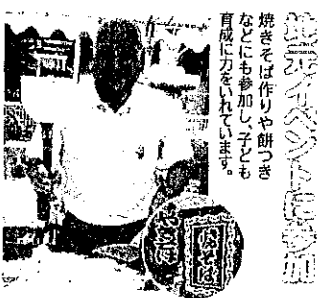 地元イベントに参加
焼きそば作りや餅つき
などにも参加し、子ども
育成に力をいれています。
やきそば